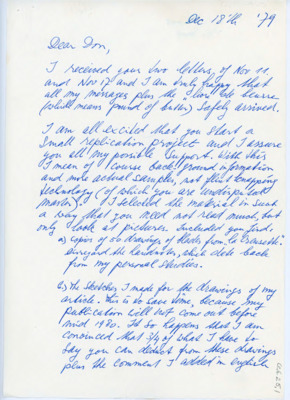 Dec 18th '79
Dear Don,
I received your two letters, of Nov 11
and Nov 17 and I am truly happy that
all my messages plus the "livre de beurre"
(which means pound of butter) safely arrived.
I am all excited that you start a
small replication project and I assure
you all my possible support. With this
I mean of course background information
and more actual samples, not flint knapping
technology (of which you are undisputed
master). I selected the material in such
a way that you need not read much, but
only look at pictures. Included you find:
a) Copies of 60 drawings of blades from la Creusette.
Disregard the handwriting, which date back
from my personal studies.
b) The sketches I made for the drawings of my
article. This to save time, because my
publication will not come out before
mid 1980. It so happens that I am
convinced that 3/4 of what I have to
say you can deduct from these drawings
plus the comment I added in english